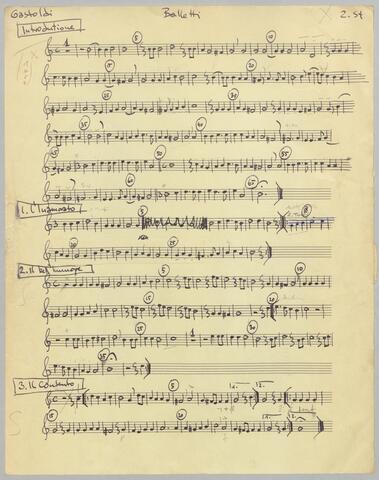 Gastoldi Balletti 2. St
Introductione
1
5
10
15
20
25
30
35
40
45
50
55
60
65
1. L'Innamorato
5
8
20
2. Il bel humore
5
10
15
20
25
1
30
35
3. Il Contento
5
1. 2.
15
20
1. 2.